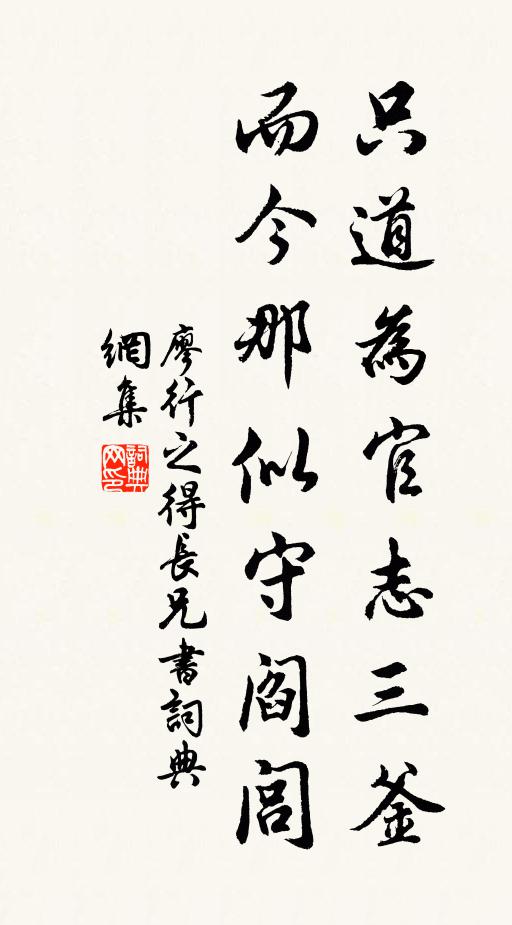 只道為官志三釜
而今那似守閻閭
廖行之得長兄書詞典
網集
詞典
网印